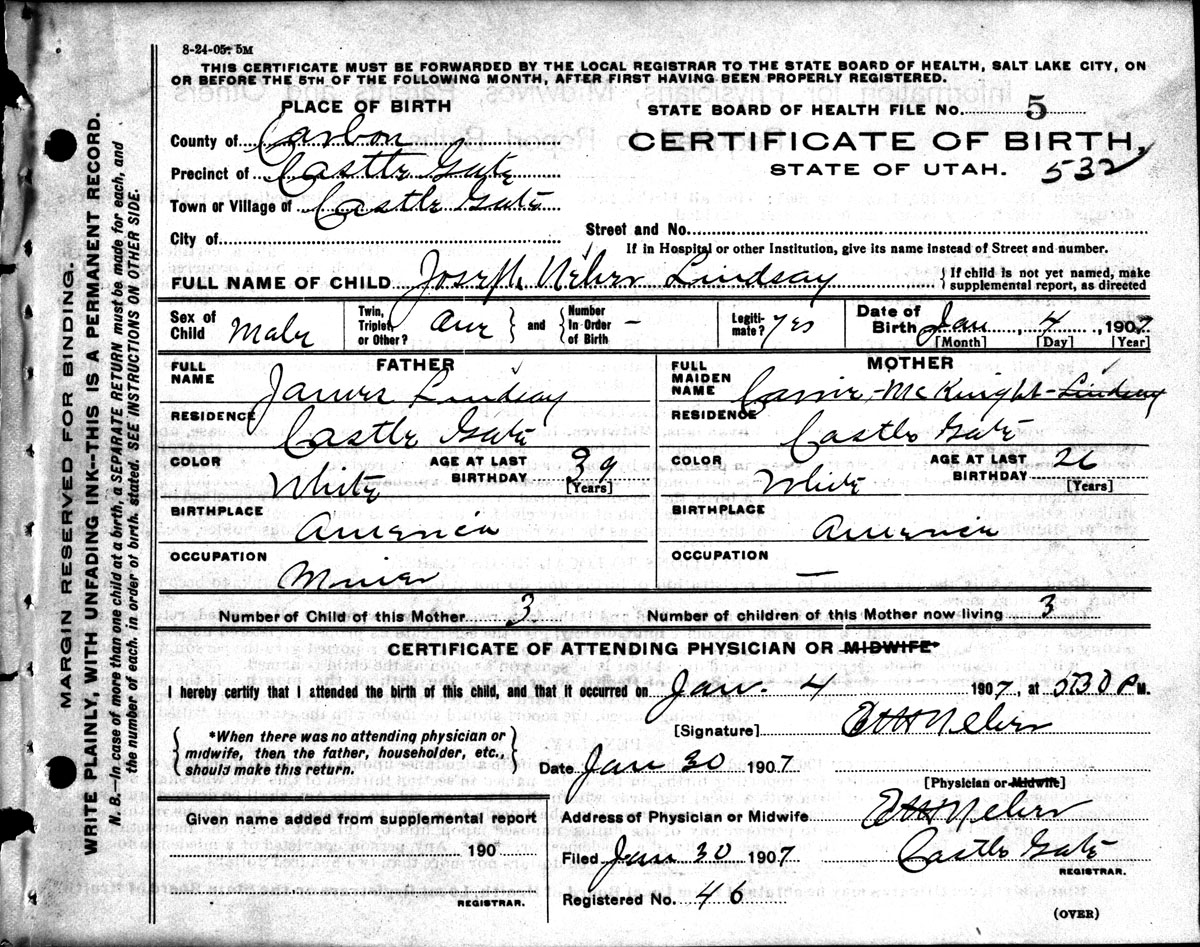 8-24-05: 5M
THIS CERTIFICATE MUST BE FORWARDED BY THE LOCAL REGISTRAR TO THE STATE BOARD OF HEALTH, SALT LAKE CITY, ON
OR BEFORE THE 5TH OF THE FOLLOWING MONTH, AFTER FIRST HAVING BEEN PROPERLY REGISTERED.
PLACE OF BIRTH
County of Carbon
Precinct of Castle Gate
Town or Village of Castle Gate
City of
STATE BOARD OF HEALTH FILE No. 5
CERTIFICATE OF BIRTH,
STATE OF UTAH. 532
Street and No.
If in Hospital or other Institution, give its name instead of Street and number.
FULL NAME OF CHILD Joseph Lindsay
{If child is not yet named, make
supplemental report, as directed
Sex of Child Male
Twin, Triplet, or Other? One } and { Number In Order of Birth –
Legitimate? Yes
Date of Birth Jan, 4, 1907
[Month] [Day] [Year]
FATHER
FULL NAME James Lindsay
RESIDENCE Castle Gate
COLOR White
AGE AT LAST BIRTHDAY 39
[Years]
BIRTHPLACE America
OCCUPATION Miner
MOTHER
FULL MAIDEN NAME McKnight-Lindsay
RESIDENCE Castle Gate
COLOR White
AGE AT LAST BIRTHDAY 26
[Years]
BIRTHPLACE America
OCCUPATION —
Number of Child of this Mother 3
Number of children of this Mother now living 3
CERTIFICATE OF ATTENDING PHYSICIAN OR MIDWIFE*
I hereby certify that I attended the birth of this child, and that it occurred on Jan. 4 1907, at 530 P M.
{*When there was no attending physician or
midwife, then the father, householder, etc.,
should make this return.}
[Signature]
Date Jan 30 1907
[Physician or Midwife]
Given name added from supplemental report
190
REGISTRAR.
Address of Physician or Midwife
Filed Jan 30 1907 Castle Gate
REGISTRAR.
Registered No. 46
(OVER)
MARGIN RESERVED FOR BINDING.
WRITE PLAINLY, WITH UNFADING INK--THIS IS A PERMANENT RECORD.
N. B.—In case of more than one child at a birth, a SEPARATE RETURN must be made for each, and
the number of each, in order of birth, stated. SEE INSTRUCTIONS ON OTHER SIDE.